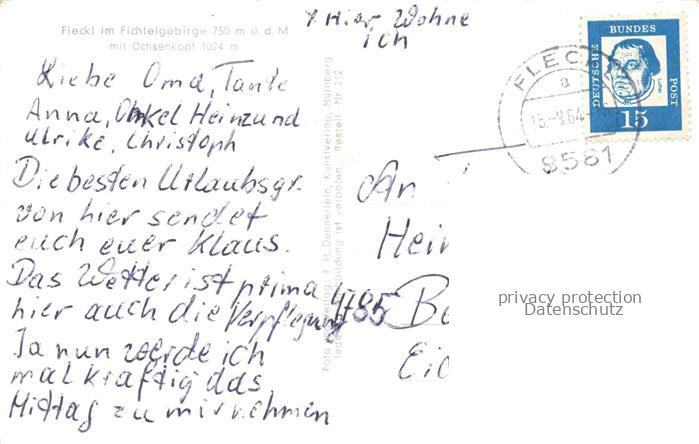 Fleckl im Fichtelgebirge 750 m ü. d. M
mit Ochsenkopf 1024 m
x Hier Wohne
ich
Liebe Oma, Tante
Anna, Onkel Heinz und
Ulrike, Christoph
Die besten Urlaubsgr.
von hier sendet
euch euer Klaus.
Das Wetter ist prima
hier auch die Verpflegung
Ja nun werde ich
mal kräftig das
Mittag zu mir nehmen
Foto u. Kunstverlag, Nürnberg
F. H. Dennerlein,
ist verboten, Bestell Nr. 212
FLECKL
a
15.-9.64
8581
DEUTSCHE
BUNDES
POST
15
An
Hein
4785 Be
Eic
privacy protection
Datenschutz